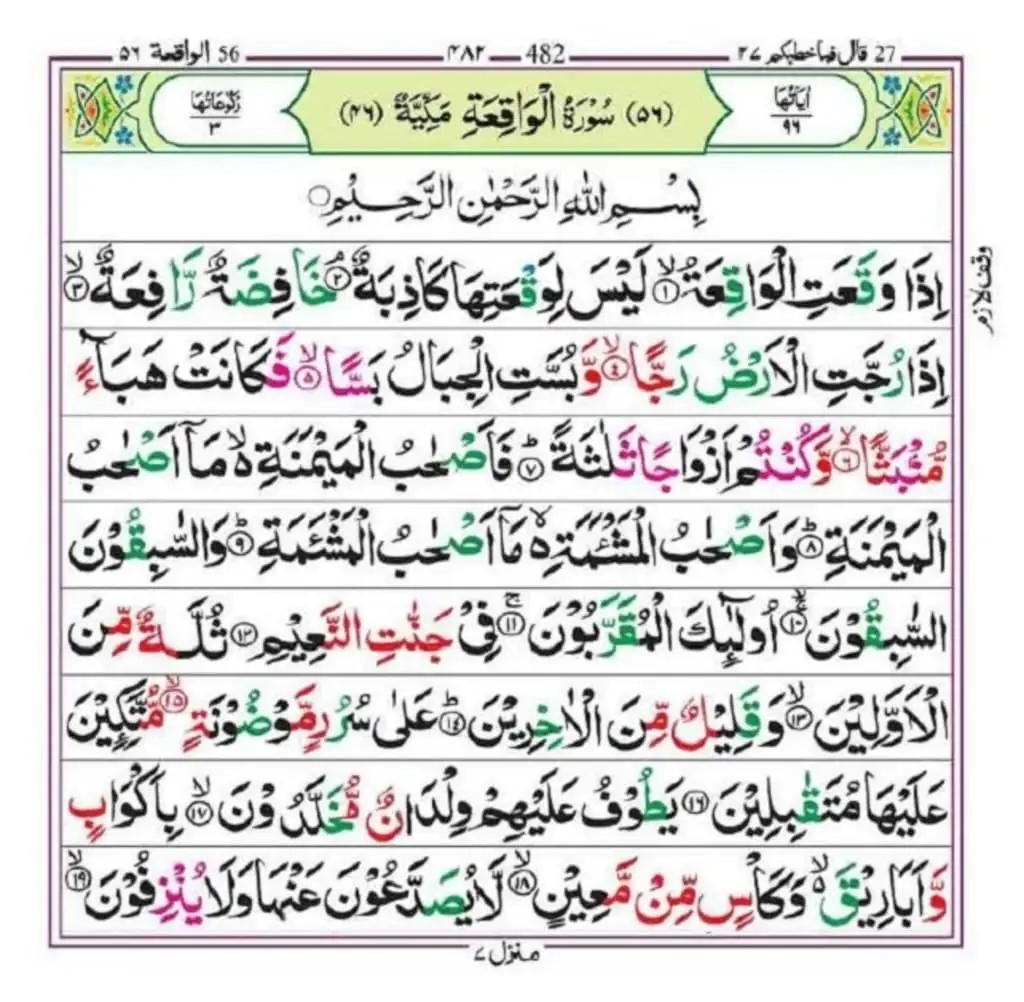 27 قال فما خطبكم ۲۷ 482 ۴۸۲ 56 الواقعة ۵۶
اٰیَاتُهَا ۹۶ (۵۶) سُوْرَةُ الْوَاقِعَةِ مَكِّيَّةٌ (۴۶) رُكُوْعَاتُهَا ۳
بِسْمِ اللّٰهِ الرَّحْمٰنِ الرَّحِيْمِ
اِذَا وَقَعَتِ الْوَاقِعَةُ ۙ﴿۱﴾ لَيْسَ لِوَقْعَتِهَا كَاذِبَةٌ ۘ﴿۲﴾ خَافِضَةٌ رَّافِعَةٌ ۙ﴿۳﴾
وقف لازم
اِذَا رُجَّتِ الْاَرْضُ رَجًّا ۙ﴿۴﴾ وَّ بُسَّتِ الْجِبَالُ بَسًّا ۙ﴿۵﴾ فَكَانَتْ هَبَآءً
مُّنْۢبَثًّا ۙ﴿۶﴾ وَّكُنْتُمْ اَزْوَاجًا ثَلٰثَةً ؕ﴿۷﴾ فَاَصْحٰبُ الْمَيْمَنَةِ ۙ۬ مَاۤ اَصْحٰبُ
الْمَيْمَنَةِ ؕ﴿۸﴾ وَاَصْحٰبُ الْمَشْـَٔمَةِ ۙ۬ مَاۤ اَصْحٰبُ الْمَشْـَٔمَةِ ؕ﴿۹﴾ وَالسّٰبِقُوْنَ
السّٰبِقُوْنَ ۚۙ﴿۱۰﴾ اُولٰٓئِكَ الْمُقَرَّبُوْنَ ۚ﴿۱۱﴾ فِيْ جَنّٰتِ النَّعِيْمِ ﴿۱۲﴾ ثُلَّةٌ مِّنَ
الْاَوَّلِيْنَ ۙ﴿۱۳﴾ وَقَلِيْلٌ مِّنَ الْاٰخِرِيْنَ ؕ﴿۱۴﴾ عَلٰى سُرُرٍ مَّوْضُوْنَةٍ ۙ﴿۱۵﴾ مُّتَّكِـِٕيْنَ
عَلَيْهَا مُتَقٰبِلِيْنَ ﴿۱۶﴾ يَطُوْفُ عَلَيْهِمْ وِلْدَانٌ مُّخَلَّدُوْنَ ۙ﴿۱۷﴾ بِاَكْوَابٍ
وَّاَبَارِيْقَ ۙ۬ وَكَاْسٍ مِّنْ مَّعِيْنٍ ۙ﴿۱۸﴾ لَّا يُصَدَّعُوْنَ عَنْهَا وَلَا يُنْزِفُوْنَ ۙ﴿۱۹﴾
منزل ۷